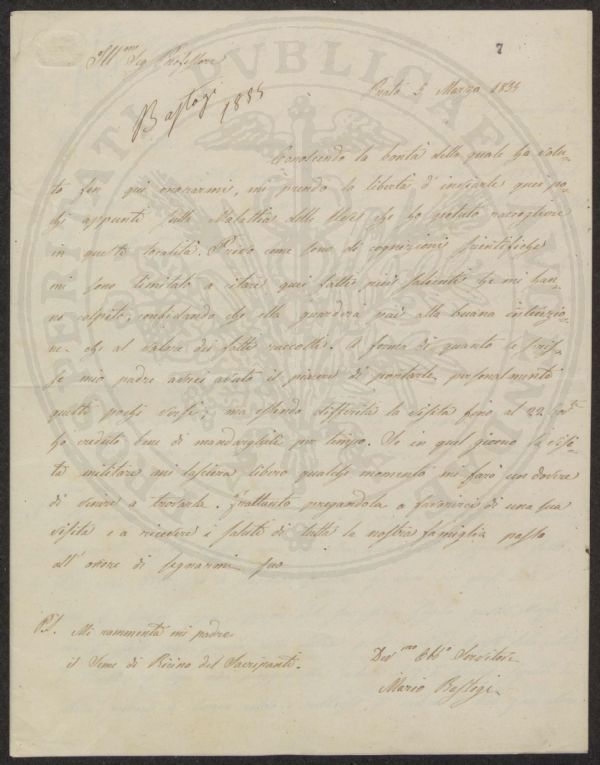 7
Ill.mo Sig Professore
Bastogi 1885
Prato 3 Marzo 1885
Conoscendo la bontà della quale ha volu-
to fin qui onorarmi, mi prendo la libertà d' inviarle quei po-
chi appunti sulla Malattia delle che ho potuto raccogliere
in queste località. Privo come sono di cognizioni scientifiche
mi sono limitato a citare quei fatti più salienti che mi han-
no colpito, confidando che ella guarderà più alla buona intenzio-
ne che al valore dei fatti raccolti. A forma di quanto le scris-
se mio padre avrei avuto il piacere di portarle personalmente
questi pochi versi; ma essendo differita la visita fino al 22
ho creduto bene di mandargliele per tempo. Se in quel giorno la visi-
ta militare mi lascerà libero qualche momento mi farò un dovere
di venire a trovarla. Frattanto pregandola a favorirci di una sua
visita e a ricevere i saluti di tutta la nostra famiglia passo
all' onore di segnarmi suo
PS. Mi rammenta mi padre
il Seme di Ricino del Sacripanti.
Dev.mo Obb.o Servitore
Mario Bastogi
PVBLICAE